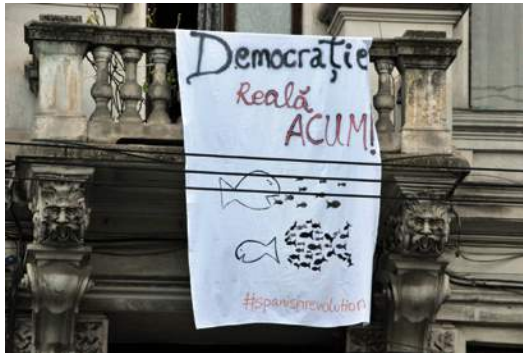 Democrație
Reală
ACUM!
#spanishrevolution